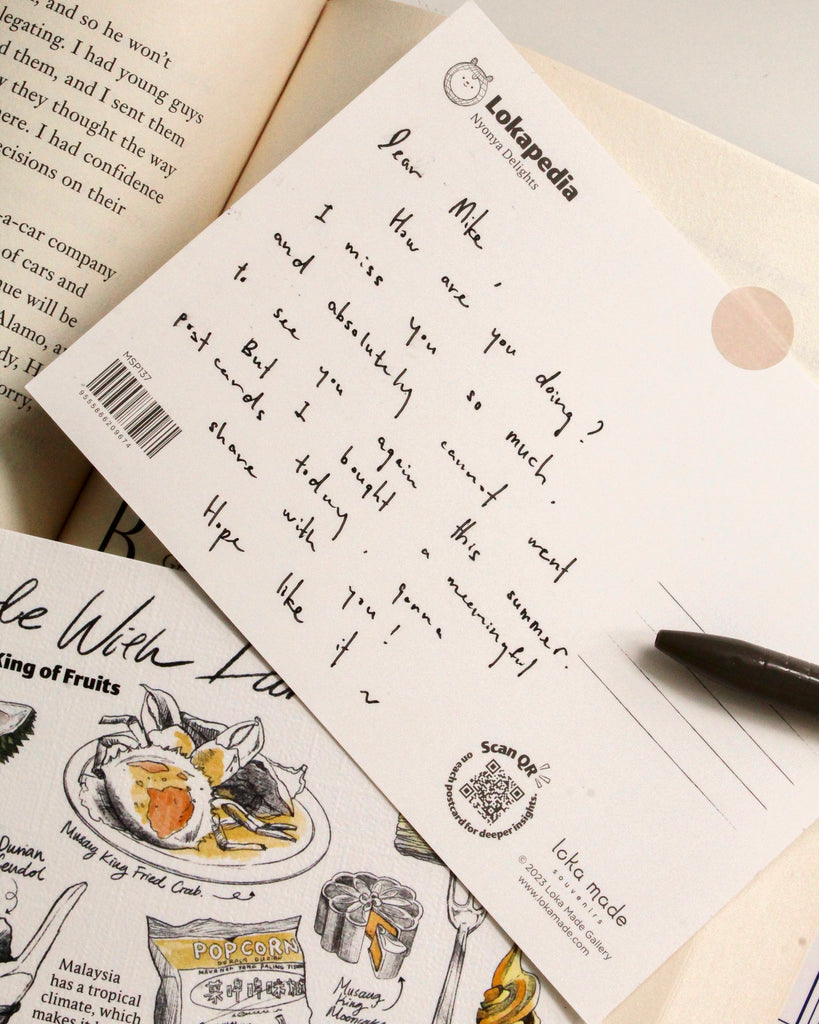 , and so he won't
legating. I had young guys
d them, and I sent them
y they thought the way
here. I had confidence
ecisions on their
-a-car company
of cars and
nue will be
Alamo, a
dy, H
orry,
Lokapedia
Nyonya Delights
Dear Mike,
How are you doing?
I miss you so much,
and absolutely cannot went
to see you again this summer.
But I bought a meaningful
post cards today. gonna
share with you!
Hope like it ~
MSP137
9555866209674
Scan QR
on each postcard for deeper insights.
loka made
souvenirs
© 2023 Loka Made Gallery
www.lokamade.com
de With
King of Fruits
Musang King Fried Crab.
Durian
Cendol
POPCORN
Musang
King
Mooncake
Malaysia
has a tropical
climate, which
makes it